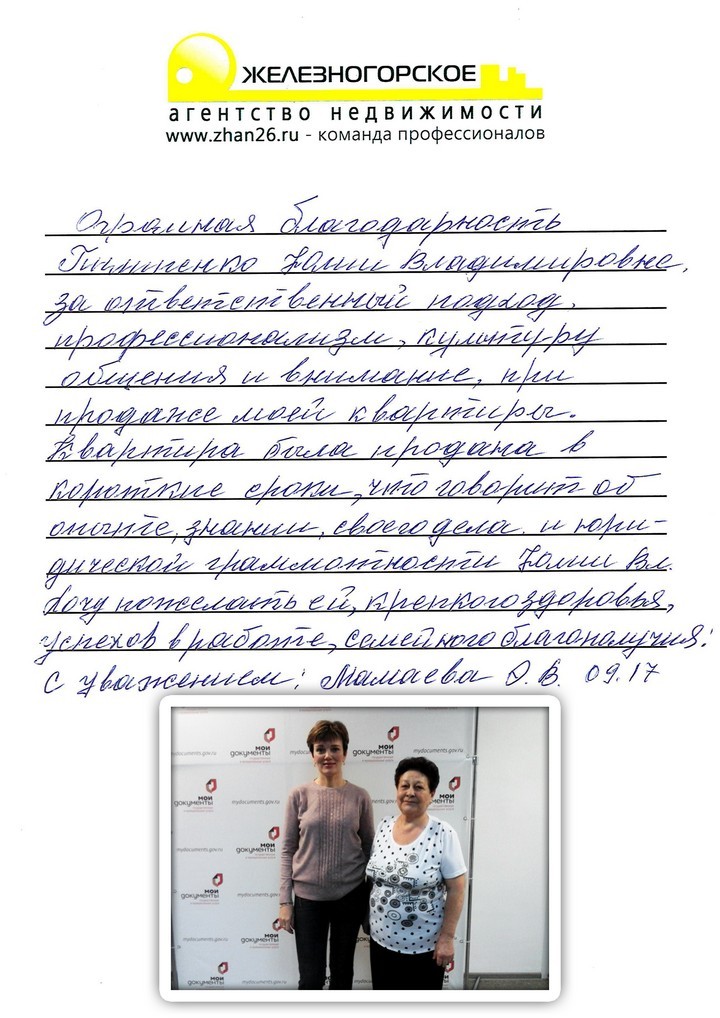 ЖЕЛЕЗНОГОРСКОЕ
агентство недвижимости
www.zhan26.ru - команда профессионалов
Огромная благодарность
Юлии Владимировне,
за ответственный подход,
профессионализм, культуру
общения и внимание, при
продаже моей квартиры.
Квартира была продана в
короткие сроки, что говорит об
опыте, знании, своего дела и юри-
дической граммотности Юлии Вл.
Хочу пожелать ей, крепкого здоровья,
успехов в работе, семейного благополучия!
С уважением: Мамаева О.В. 09.17
мои документы
mydocuments.gov.ru
мои документы
mydocuments.gov.ru
мои документы
mydocuments.gov.ru
мои документы
mydocuments.gov.ru
мои документы
mydocuments.gov.ru
мои документы
mydocuments.gov.ru
мои документы